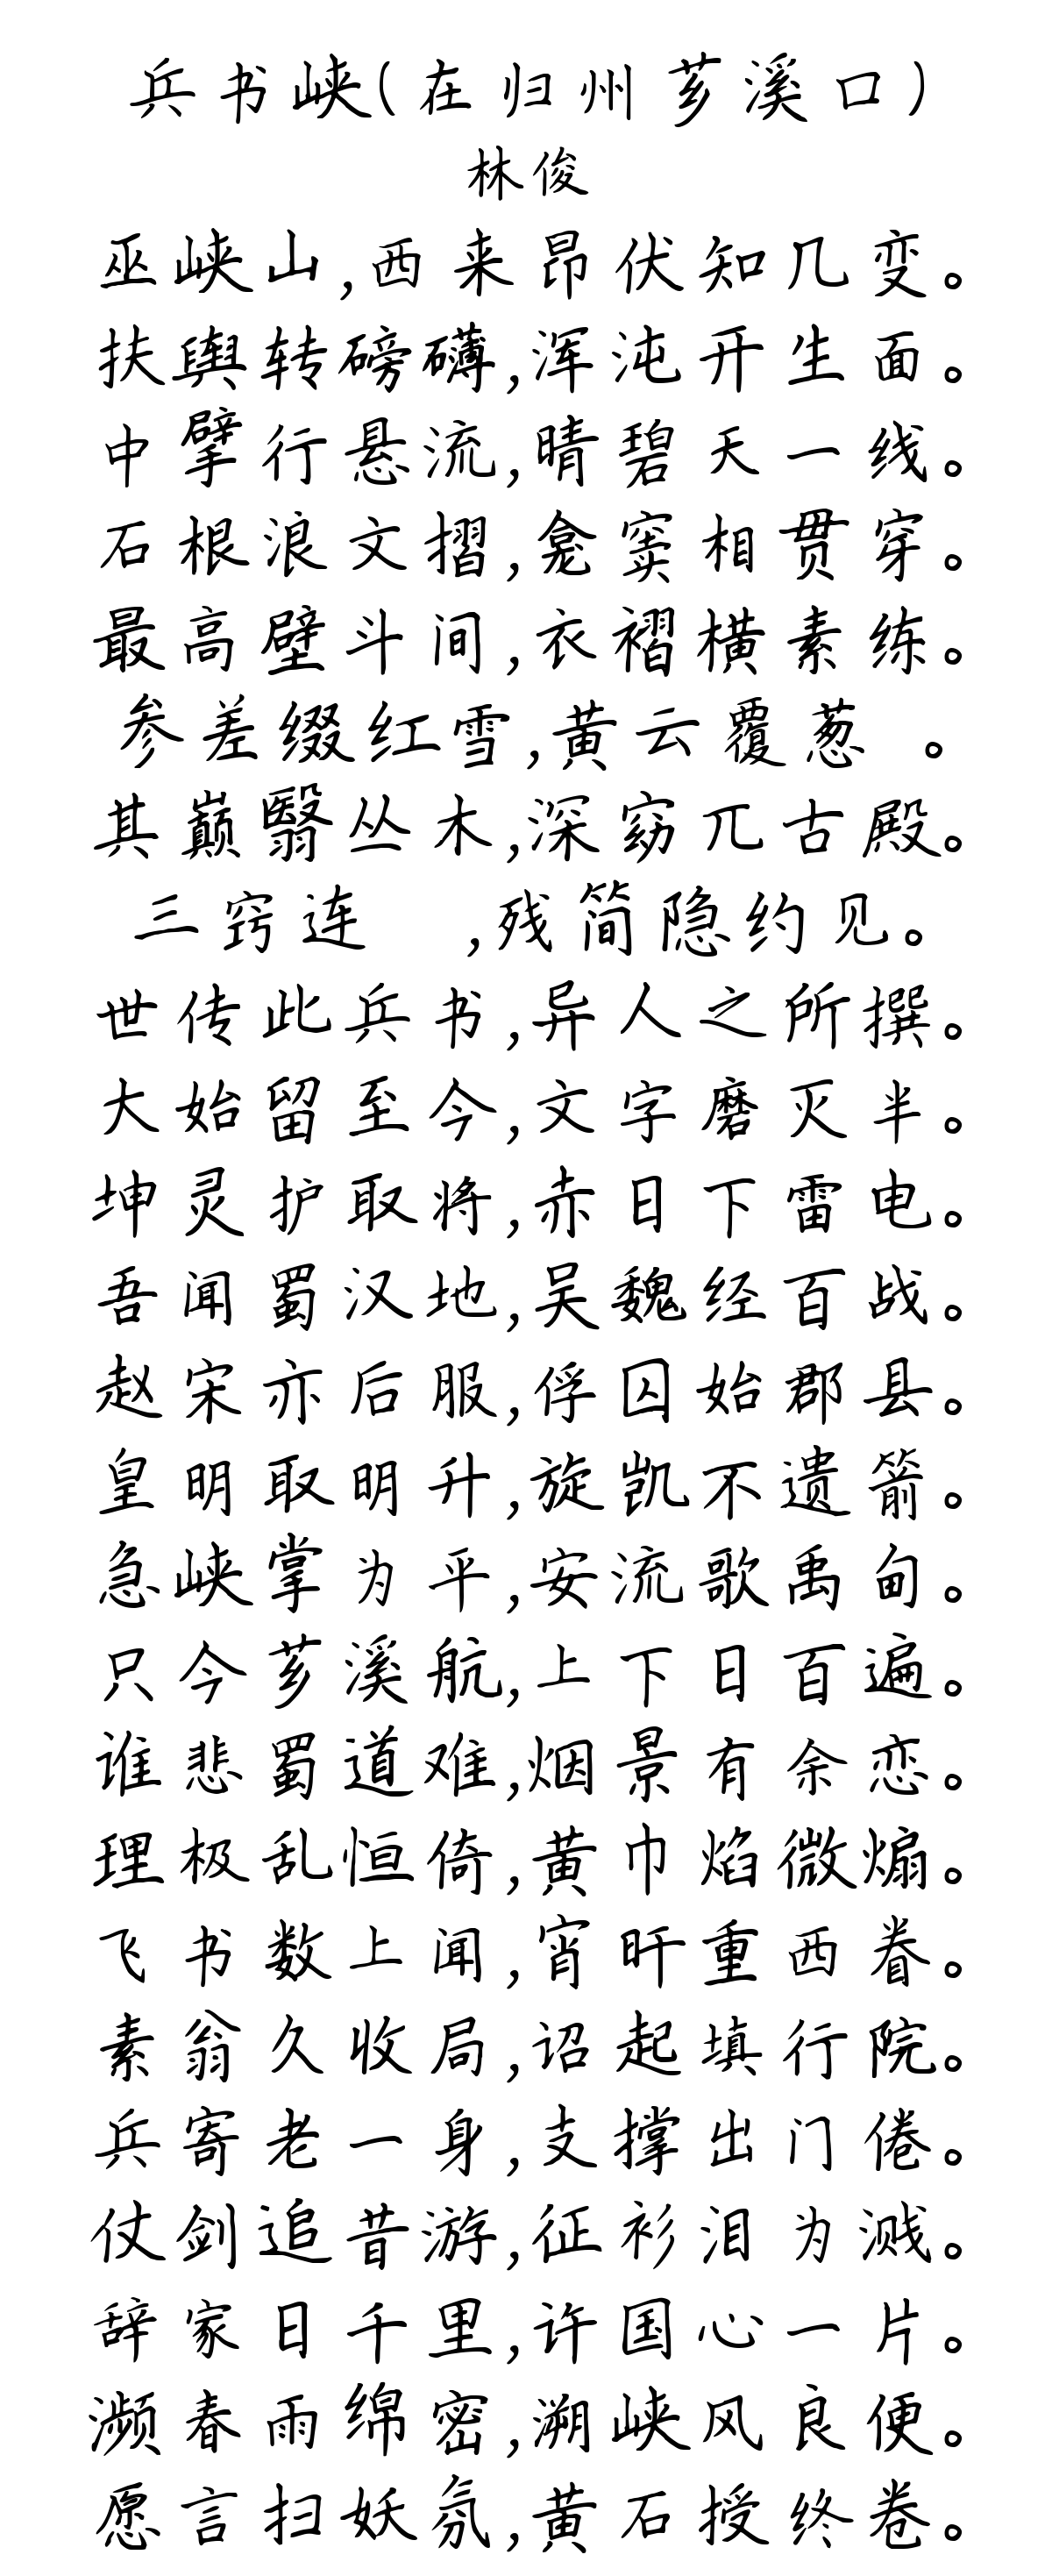 兵书峡(在归州芗溪口)
林俊
巫峡山,西来昂伏知几变。
扶舆转磅礴,浑沌开生面。
中擘行悬流,晴碧天一线。
石根浪文摺,龛窦相贯穿。
最高壁斗间,衣褶横素练。
参差缀红雪,黄云覆葱 。
其巅翳丛木,深窈兀古殿。
三窍连 ,残简隐约见。
世传此兵书,异人之所撰。
大始留至今,文字磨灭半。
坤灵护取将,赤日下雷电。
吾闻蜀汉地,吴魏经百战。
赵宋亦后服,俘囚始郡县。
皇明取明升,旋凯不遗箭。
急峡掌为平,安流歌禹甸。
只今芗溪航,上下日百遍。
谁悲蜀道难,烟景有余恋。
理极乱恒倚,黄巾焰微煽。
飞书数上闻,宵旰重西眷。
素翁久收局,诏起填行院。
兵寄老一身,支撑出门倦。
仗剑追昔游,征衫泪为溅。
辞家日千里,许国心一片。
濒春雨绵密,溯峡风良便。
愿言扫妖氛,黄石授终卷。